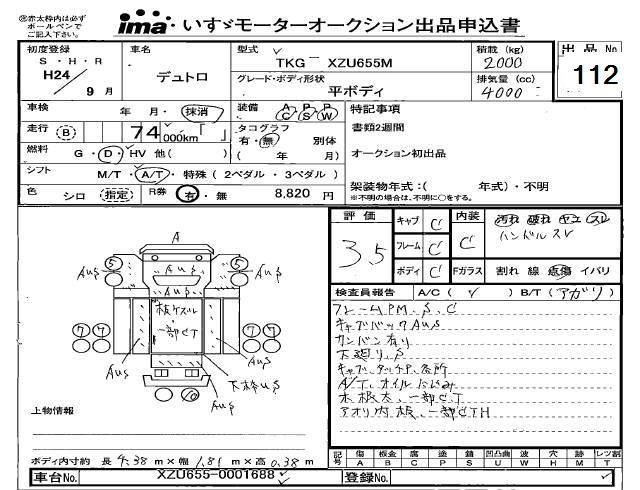 ※赤太枠内は必ず
ボールペンで
ご記入下さい。
ima いすゞモーターオークション出品申込書
初度登録 車名 型式 積載 (kg) 出品No
S・H・R
H24 9 月
デュトロ
TKG XZU655M
2000
112
グレード・ボディ形状
平ボディ
排気量 (cc)
4000
車検 年 月・抹消 装備 A/C P/S P/W 特記事項
走行 B 74 000km「 」 タコグラフ 書類2週間
有・無 別体
燃料 G・D・HV 他( ) ( 年 月) オークション初出品
シフト M/T・A/T・特殊(2ペダル・3ペダル)
架装物年式:( 年式)・不明
※不明の場合は、不明に○をする。
色 シロ 指定 R券 有・無 8,820 円
評価 キャブ C 内装 汚れ 破れ ヤニ スレ
3.5 フレーム C C ハンドルスレ
ボディ C Fガラス 割れ 線 点傷 イバリ
検査員報告 A/C( ) B/T(アガリ)
フレームPM.S.C
キャブバックAuS
カンバン有り
下廻り.S
キャブ.タッチP.各所
A/T.オイルにじみ
木根太.一部ヒT
アオリ内板.一部ヒTH
A
5 5
AuS AuS
AuS
AuS
板ケズレ
・
一部ヒT
7 7 7 7
AuS AuS
下枠uS
AuS
10
上物情報
ボディ内寸約 長 4.38 m×幅 1.81 m×高 0.38 m
記号 傷 板金 腐 塗 錆 凹凸曲 波 穴 跡 レンズ割
A B C P S U W H M T
車台No. XZU655-0001688 登録No.